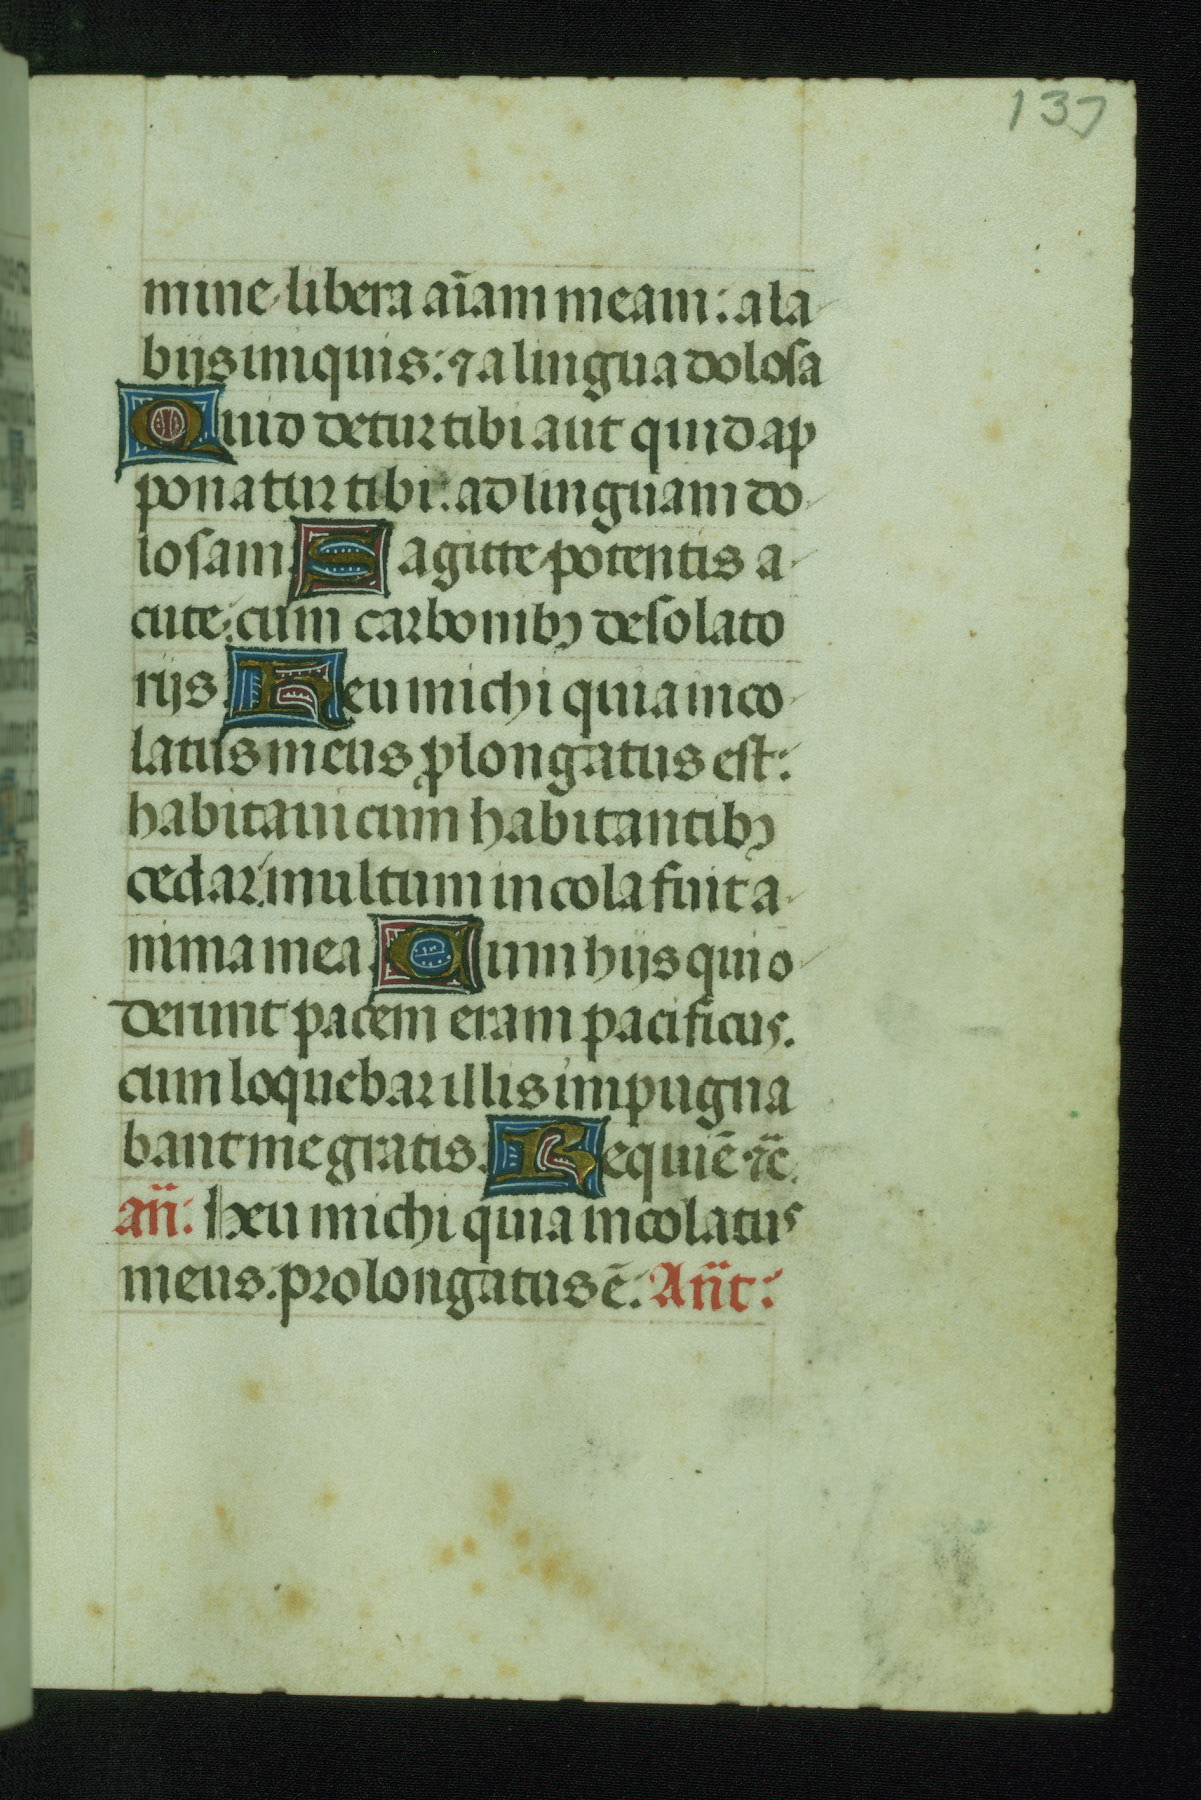 137
mine libera aīam meam: a la
bijs iniquis: ⁊ a lingua dolosa
Quid detur tibi aut quid ap
ponatur tibi. ad linguam do
losam. Sagitte potentis a
cute: cum carbonibꝫ desolato
rijs. Heu michi quia inco
latus meus ꝓlongatus est:
habitaui cum habitantibꝫ
cedar. multum incola fuit a
nima mea. Cum hijs qui o
derunt pacem eram pacificus.
cum loquebar illis impugna
bant me gratis. Requiē ⁊c̄.
an̄: Heu michi quia incolatus
meus. prolongatus ē: An̄t: